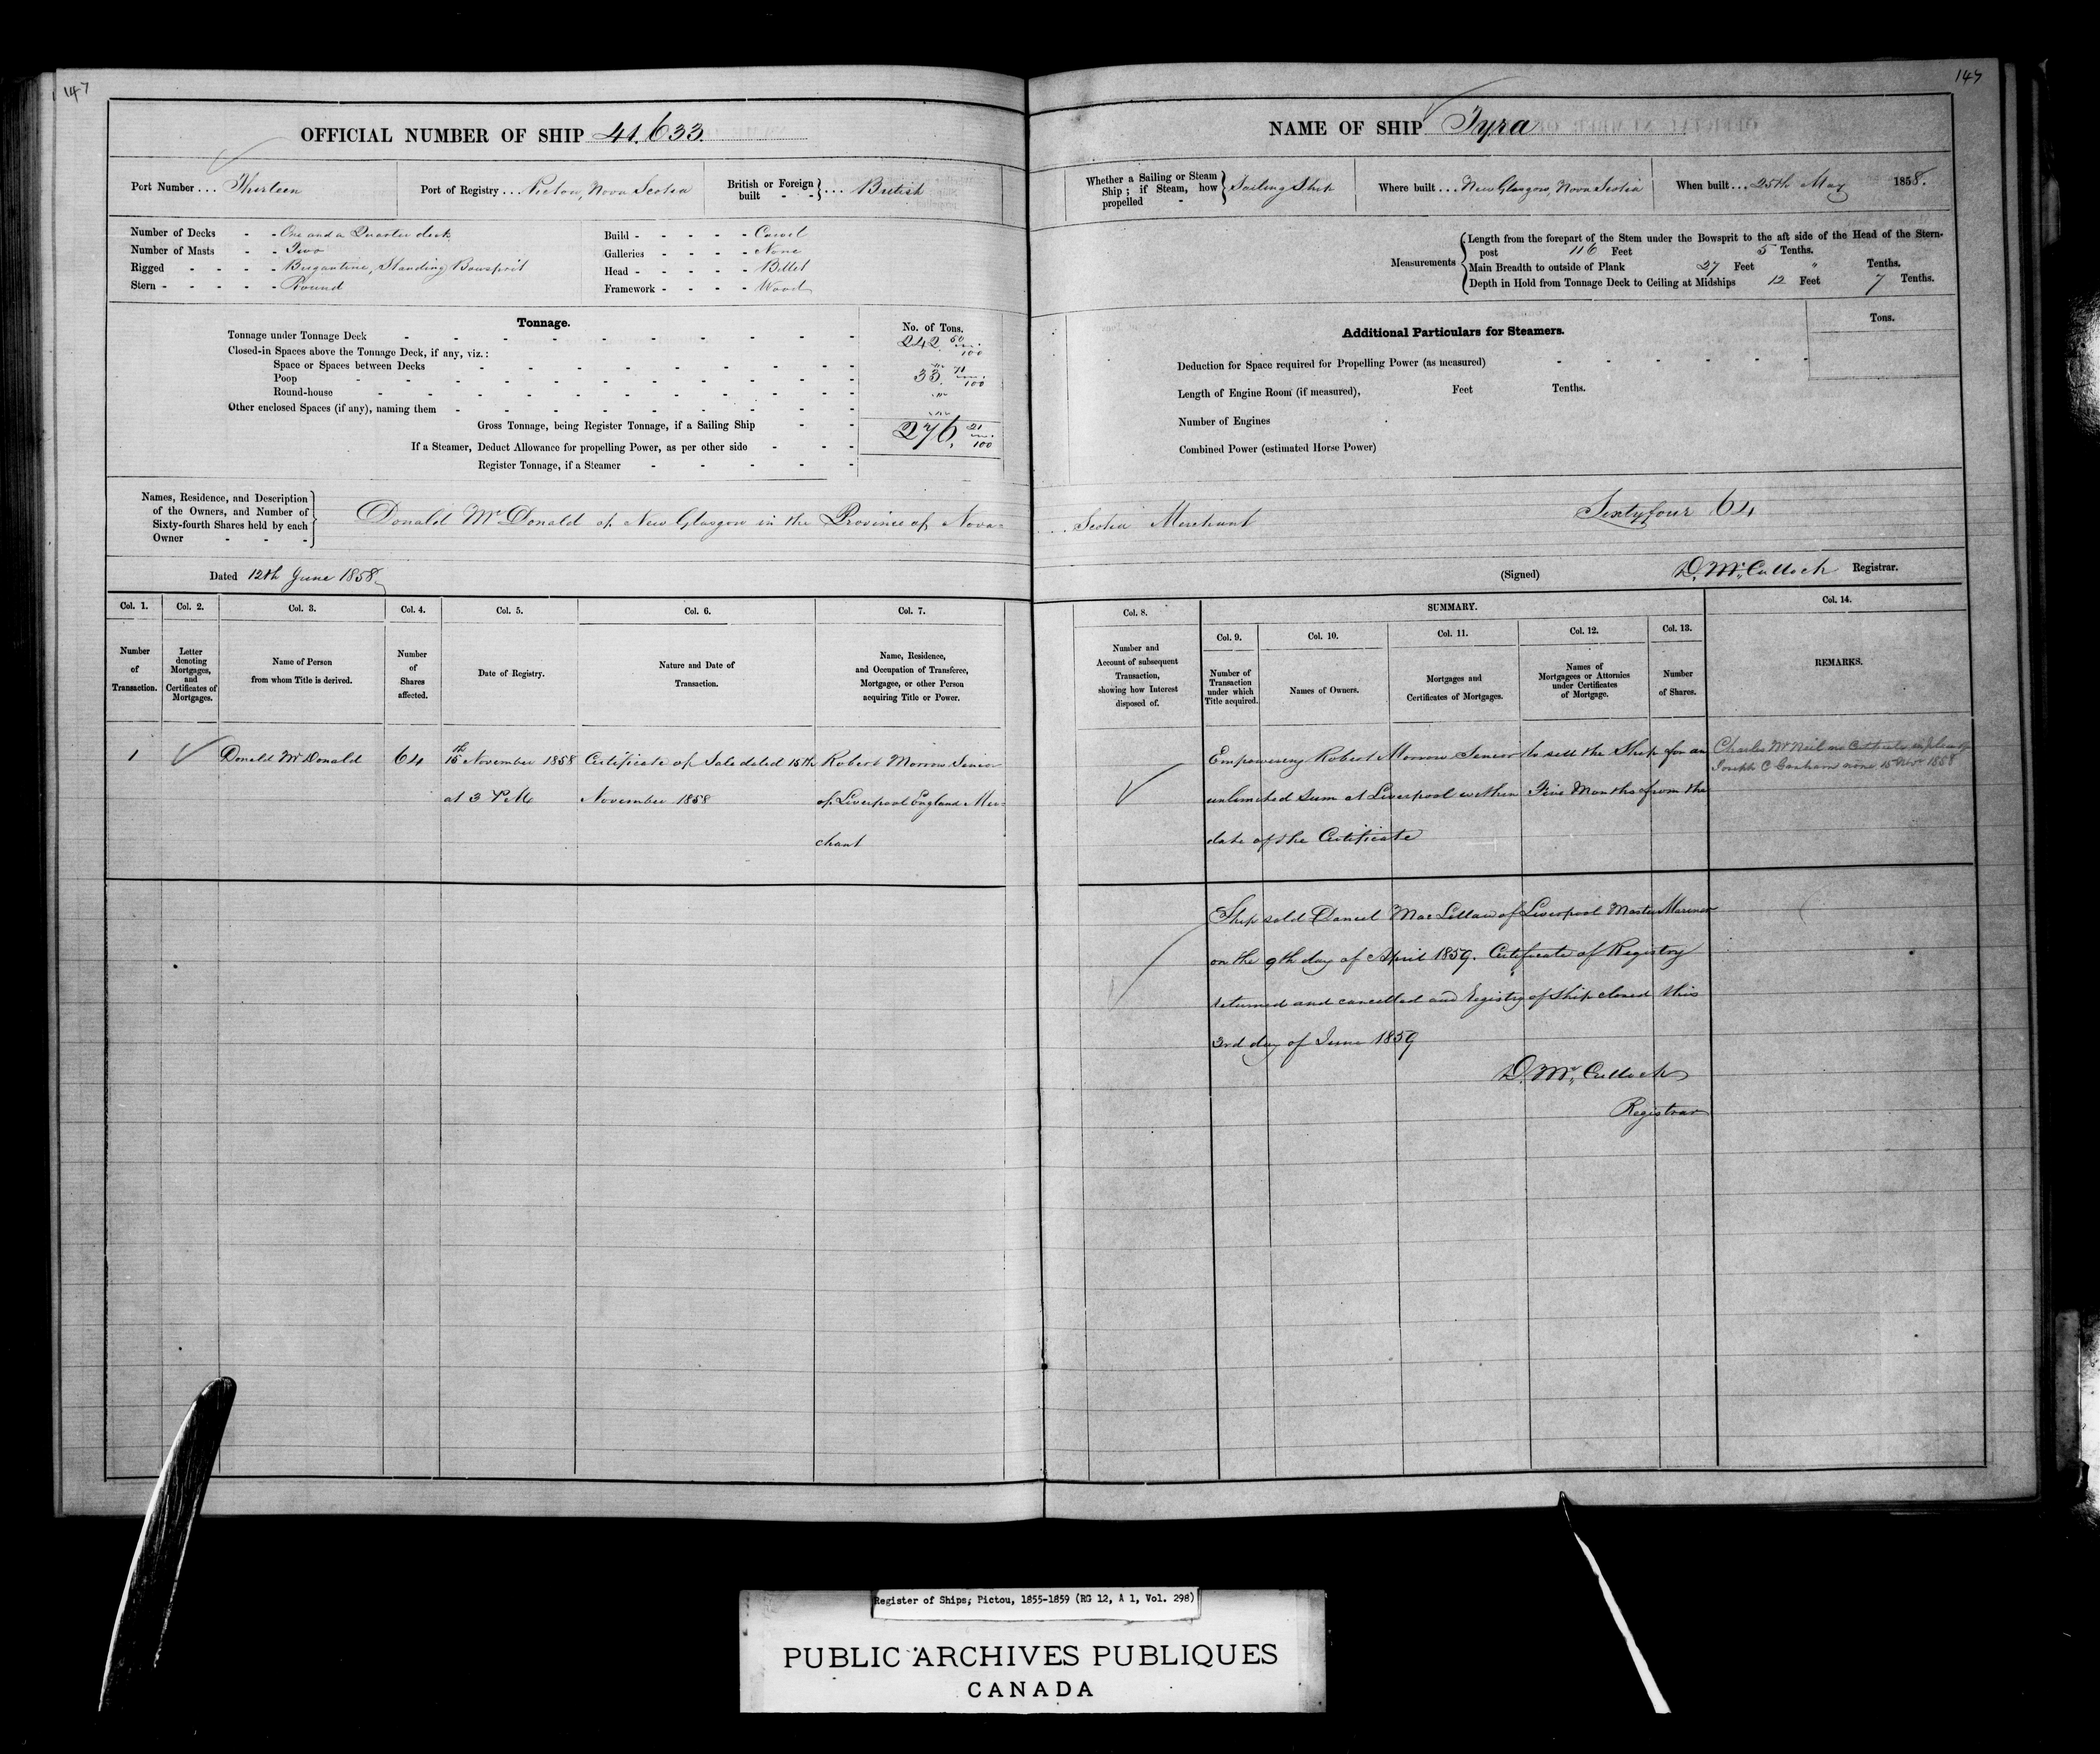 147
OFFICIAL NUMBER OF SHIP 41.633.
Port Number ... Thirteen
Port of Registry ... Pictou, Nova Scotia
British or Foreign built - - } ... British
Number of Decks - - One and a Quarter deck
Number of Masts - - Two
Rigged - - - - Brigantine, Standing Bowsprit
Stern - - - - - Round
Build - - - - - Carvel
Galleries - - - - None
Head - - - - - Billet
Framework - - - - Wood
Tonnage.
No. of Tons.
Tonnage under Tonnage Deck 242. 50/100
Closed-in Spaces above the Tonnage Deck, if any, viz.:
Space or Spaces between Decks
Poop 33. 71/100
Round-house
Other enclosed Spaces (if any), naming them
Gross Tonnage, being Register Tonnage, if a Sailing Ship 276. 21/100
If a Steamer, Deduct Allowance for propelling Power, as per other side
Register Tonnage, if a Steamer
Names, Residence, and Description
of the Owners, and Number of
Sixty-fourth Shares held by each
Owner
Donald McDonald of New Glasgow in the Province of Nova-
Dated 12th June 1858
Col. 1.
Col. 2.
Col. 3.
Col. 4.
Col. 5.
Col. 6.
Col. 7.
Number
of
Transaction.
Letter
denoting
Mortgages,
and
Certificates of
Mortgages.
Name of Person
from whom Title is derived.
Number
of
Shares
affected.
Date of Registry.
Nature and Date of
Transaction.
Name, Residence,
and Occupation of Transferee,
Mortgagee, or other Person
acquiring Title or Power.
1 Donald McDonald 64 15th November 1858 Certificate of Sale dated 15th Robert Morrow Senior
at 3 P.M. November 1858 of Liverpool England Mer-
chant
147
NAME OF SHIP Tyra
Whether a Sailing or Steam
Ship; if Steam, how
propelled -
Sailing Ship
Where built ... New Glasgow, Nova Scotia
When built ... 25th May 1858.
Measurements
Length from the forepart of the Stem under the Bowsprit to the aft side of the Head of the Stern-
post 116 Feet 5 Tenths.
Main Breadth to outside of Plank 27 Feet " Tenths.
Depth in Hold from Tonnage Deck to Ceiling at Midships 12 Feet 7 Tenths.
Additional Particulars for Steamers.
Tons.
Deduction for Space required for Propelling Power (as measured)
Length of Engine Room (if measured), Feet Tenths.
Number of Engines
Combined Power (estimated Horse Power)
Scotia Merchant Sixty four 64
(Signed) D. McCulloch Registrar.
Col. 8.
SUMMARY.
Col. 9.
Col. 10.
Col. 11.
Col. 12.
Col. 13.
Col. 14.
Number and
Account of subsequent
Transaction,
showing how Interest
disposed of.
Number of
Transaction
under which
Title acquired.
Names of Owners.
Mortgages and
Certificates of Mortgages.
Names of
Mortgagees or Attornies
under Certificates
of Mortgage.
Number
of Shares.
REMARKS.
Empowering Robert Morrow Senior to sell the Ship for an
unlimited sum at Liverpool within Five Months from the
date of the Certificate
Charles McNeil no Certificate
Joseph C Graham none 15 Novr 1858
Ship sold Daniel MacLellan of Liverpool Master Mariner
on the 9th day of April 1859. Certificate of Registry
returned and cancelled and Registry of Ship closed this
3rd day of June 1859
D. McCulloch
Registrar
Register of Ships; Pictou, 1855-1859 (RG 12, A 1, Vol. 298)
PUBLIC ARCHIVES PUBLIQUES
CANADA